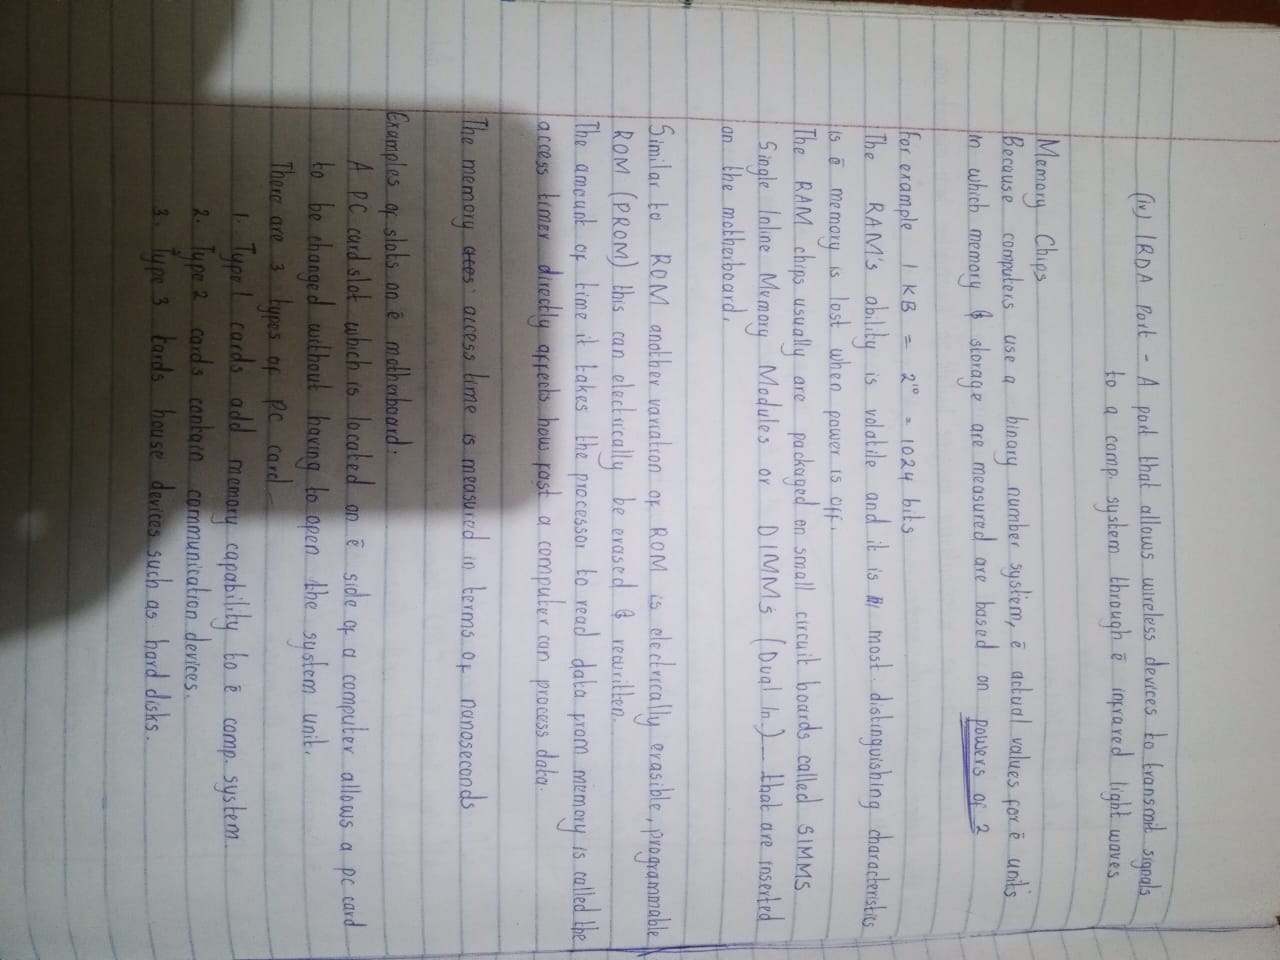 (iv) IRDA Port - A port that allows wireless devices to transmit signals
to a comp. system through ē infrared light waves
Memory Chips
Because computers use a binary number system, ē actual values for ē units
in which memory & storage are measured are based on powers of 2
For example 1 KB = 2¹⁰ = 1024 bits
The RAM's ability is volatile and it is most distinguishing characteristics
is ē memory is lost when power is off.
The RAM chips usually are packaged on small circuit boards called SIMMS
Single Inline Memory Modules or DIMMs (Dual In.) - that are inserted
on the motherboard.
Similar to ROM another variation of ROM is electrically erasible, programmable
ROM (PROM) this can electrically be erased & rewritten.
The amount of time it takes the processor to read data from memory is called the
access timer directly affects how fast a computer can process data.
The memory access time is measured in terms of nanoseconds
Examples of slots on ē motherboard.
A PC card slot which is located on ē side of a computer allows a pc card
to be changed without having to open the system unit.
There are 3 types of PC card
1. Type 1 cards add memory capability to ē comp. system.
2. Type 2 cards contain communication devices.
3. Type 3 cards house devices such as hard disks.